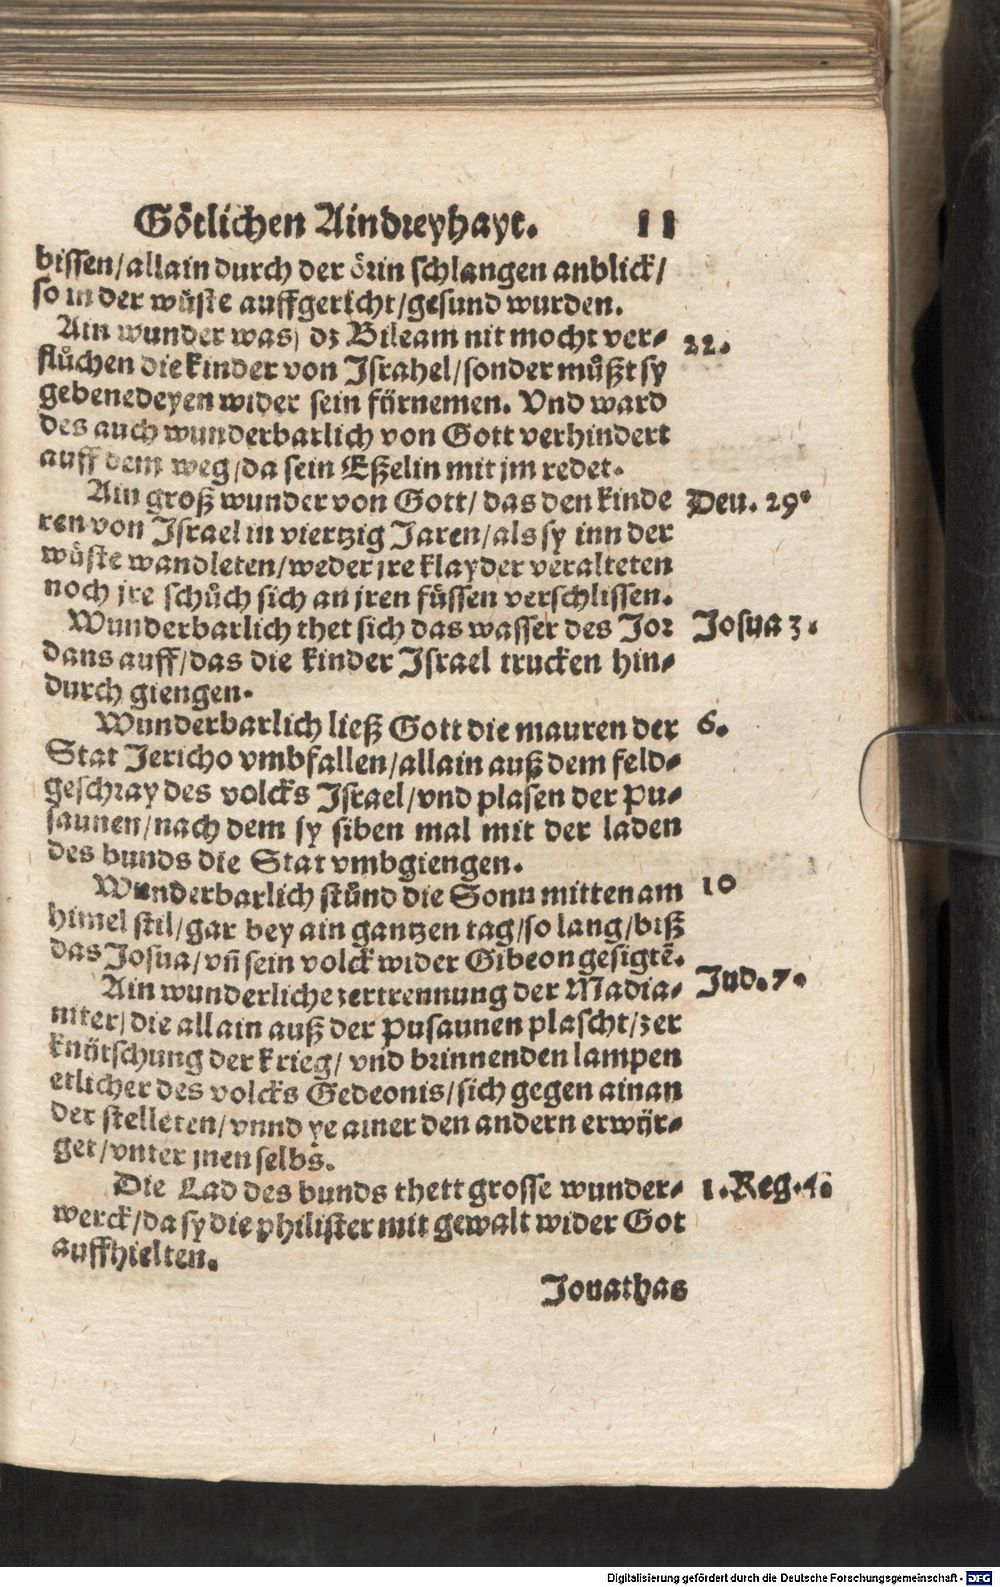 Götlichen Aindreyhayt. 11
bissen/allain durch der örin schlangen anblick/
so in der wüste auffgericht/gesund wurden.
Ain wunder was/ dz Bileam nit mocht ver- 22.
flůchen die kinder von Israhel/sonder můßt sy
gebenedeyen wider sein fürnemen. Vnd ward
des auch wunderbarlich von Gott verhindert
auff dem weg/da sein Eßelin mit jm redet.
Ain groß wunder von Gott/ das den kinde Deu. 29.
ren von Israel in viertzig Jaren/als sy inn der
wüste wandleten/weder jre klayder veralteten
noch jre schůch sich an jren füssen verschlissen.
Wunderbarlich thet sich das wasser des Jor Josua 3.
dans auff/das die kinder Israel trucken hin-
durch giengen.
Wunderbarlich ließ Gott die mauren der 6.
Stat Jericho vmbfallen/allain auß dem feld-
geschray des volcks Israel/vnd plasen der Pu-
saunen/nach dem sy siben mal mit der laden
des bunds die Stat vmbgiengen.
Wunderbarlich stůnd die Sonn mitten am 10
himel stil/gar bey ain gantzen tag/so lang/biß
das Josua/vñ sein volck wider Gibeon gesigtẽ.
Ain wunderliche zertrennung der Madia- Jud. 7.
niter/die allain auß der Pusaunen plascht/zer
knütschung der krieg/ vnd brinnenden lampen
etlicher des volcks Gedeonis/sich gegen ainan
der stelleten/vnnd ye ainer den andern erwür-
get/vnter jnen selbs.
Die Lad des bunds thett grosse wunder- 1. Reg.
werck/da sy die philister mit gewalt wider Got
auffhielten.
Jonathas
Digitalisierung gefördert durch die Deutsche Forschungsgemeinschaft - DFG